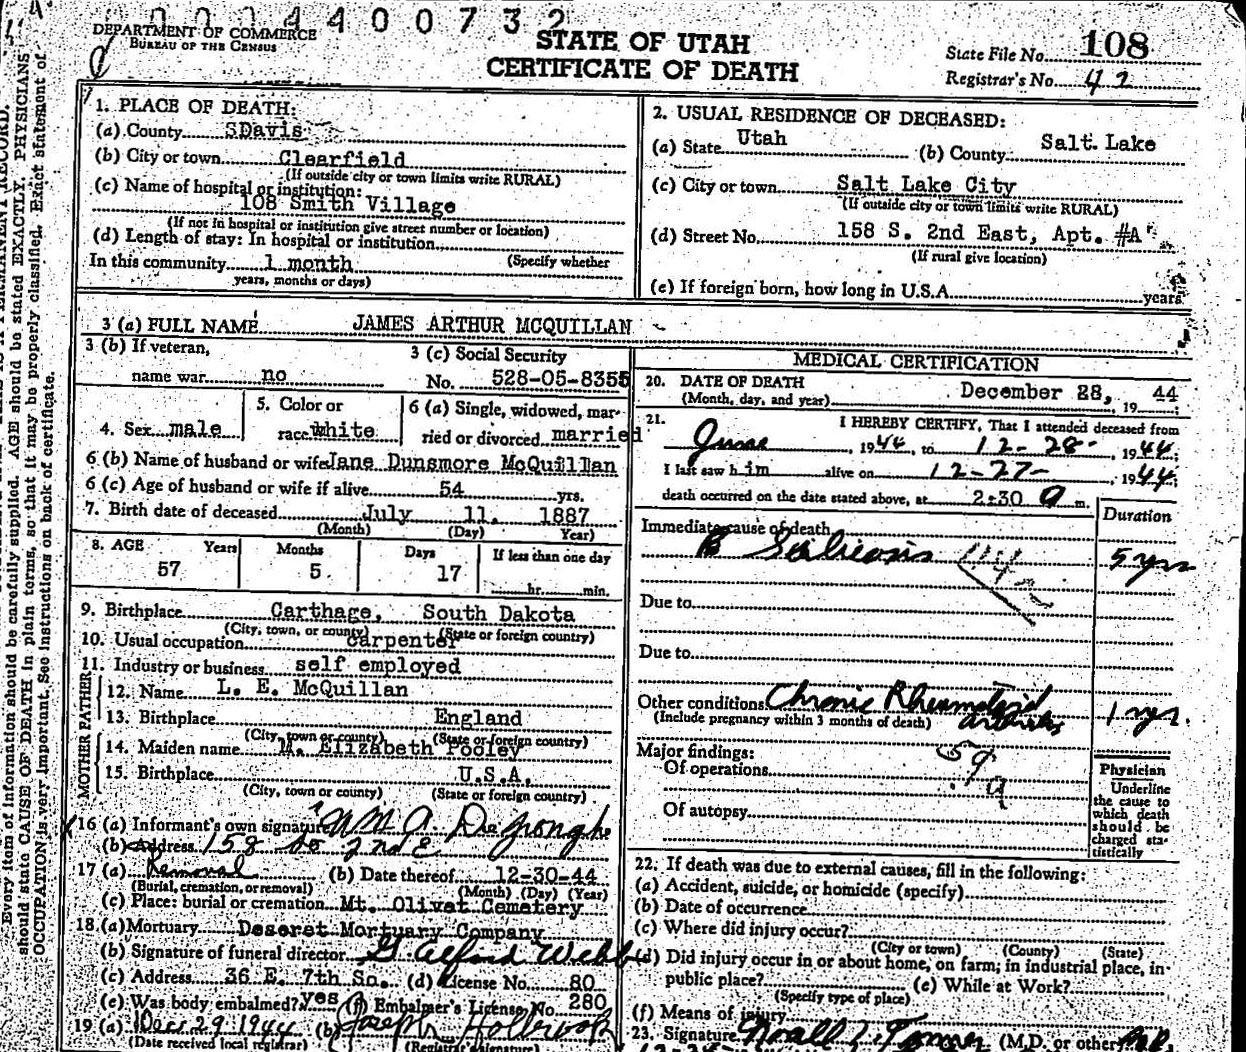 0004400732
DEPARTMENT OF COMMERCE
BUREAU OF THE CENSUS
STATE OF UTAH
CERTIFICATE OF DEATH
State File No. 108
Registrar's No. 42
1. PLACE OF DEATH:
(a) County SDavis
(b) City or town Clearfield
(If outside city or town limits write RURAL)
(c) Name of hospital or institution:
108 Smith Village
(If not in hospital or institution give street number or location)
(d) Length of stay: In hospital or institution
In this community 1 month (Specify whether
years, months or days)
2. USUAL RESIDENCE OF DECEASED:
(a) State Utah (b) County Salt Lake
(c) City or town Salt Lake City
(If outside city or town limits write RURAL)
(d) Street No. 158 S. 2nd East, Apt. #A
(If rural give location)
(e) If foreign born, how long in U.S.A. years
3 (a) FULL NAME JAMES ARTHUR MCQUILLAN
3 (b) If veteran,
name war no
3 (c) Social Security
No. 528-05-8355
4. Sex male
5. Color or
race white
6 (a) Single, widowed, mar-
ried or divorced married
6 (b) Name of husband or wife Jane Dunsmore McQuillan
6 (c) Age of husband or wife if alive 54 yrs.
7. Birth date of deceased July 11, 1887
(Month) (Day) Year)
8. AGE Years Months Days If less than one day
57 5 17 hr. min.
9. Birthplace Carthage, South Dakota
(City, town, or county) (State or foreign country)
10. Usual occupation carpenter
11. Industry or business self employed
FATHER
12. Name L. E. McQuillan
13. Birthplace England
(City, town or county) (State or foreign country)
MOTHER
14. Maiden name M. Elizabeth Pooley
15. Birthplace U.S.A.
(City, town or county) (State or foreign country)
16 (a) Informant's own signature
(b) Address 158 So 2nd E
17 (a) Removal (b) Date thereof 12-30-44
(Burial, cremation, or removal) (Month) (Day) (Year)
(c) Place: burial or cremation Mt. Olivet Cemetery
18. (a) Mortuary Deseret Mortuary Company
(b) Signature of funeral director G. Alford Webb
(c) Address 36 E. 7th So. (d) License No. 80
(e) Was body embalmed? yes (f) Embalmer's License No. 280
19 (a) Dec 29 1944 (b) Joseph Holbrook
(Date received local registrar) (Registrar's signature)
MEDICAL CERTIFICATION
20. DATE OF DEATH
(Month, day, and year) December 28, 19 44
21. I HEREBY CERTIFY, That I attended deceased from
June, 19 44, to 12-28-, 19 44;
I last saw h im alive on 12-27-, 19 44;
death occurred on the date stated above, at 2:30 a m.
Duration
Immediate cause of death
5 yrs
Due to
Due to
Other conditions Chronic Rheumatoid
(Include pregnancy within 3 months of death) arthritis 1 yr.
Major findings:
Of operations
59
a
Of autopsy
Physician
Underline
the cause to
which death
should be
charged sta-
tistically
22. If death was due to external causes, fill in the following:
(a) Accident, suicide, or homicide (specify)
(b) Date of occurrence
(c) Where did injury occur?
(City or town) (County) (State)
(d) Did injury occur in or about home, on farm; in industrial place, in-
public place? (e) While at Work?
(Specify type of place)
(f) Means of injury
23. Signature (M.D. or other)
Every item of information should be carefully supplied. AGE should be stated EXACTLY. PHYSICIANS
should state CAUSE OF DEATH in plain terms, so that it may be properly classified. Exact statement of
OCCUPATION is very important. See instructions on back of certificate.